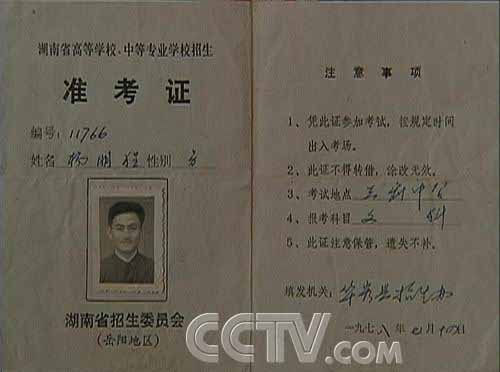 湖南省高等学校、中等专业学校招生
准考证
编号：11766
姓名 杨 性别
湖南省招生委员会
(岳阳地区)
注意事项
1、凭此证参加考试，按规定时间
出入考场。
2、此证不得转借，涂改无效。
3、考试地点
4、报考科目 文科
5、此证注意保管，遗失不补。
填发机关：华容县招生办
一九七八年七月十四日
CCTV.com